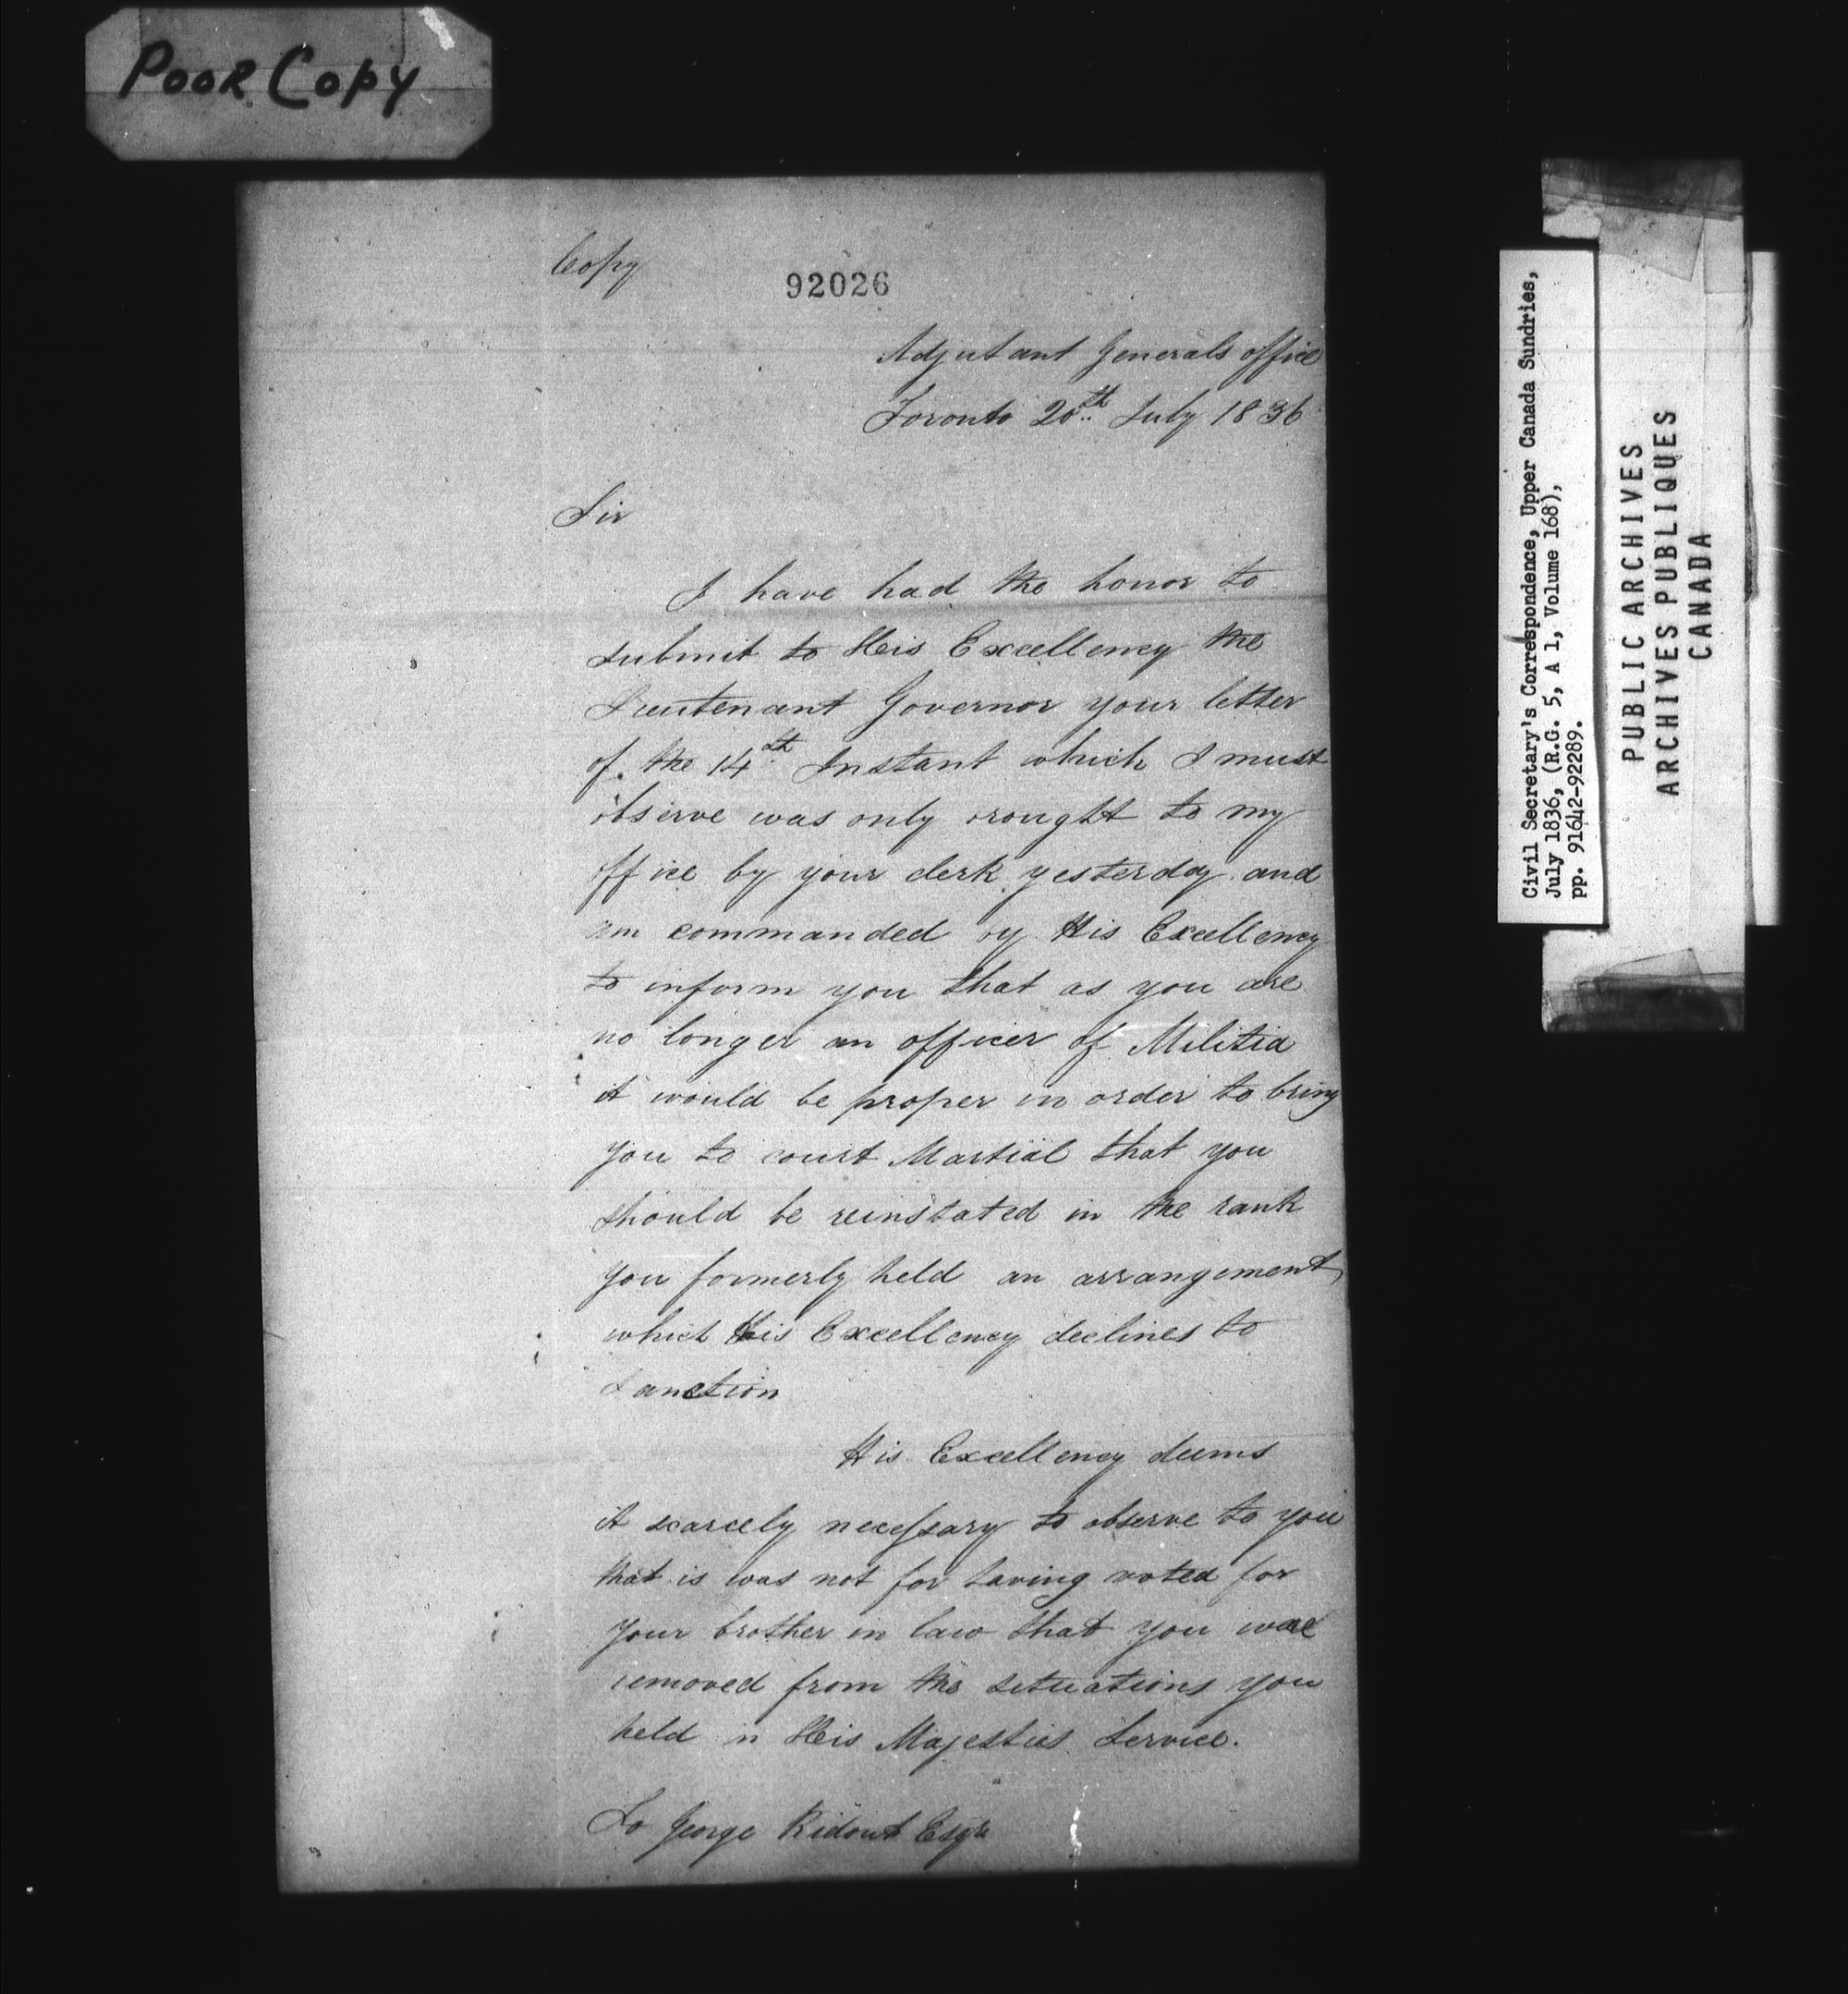 Poor Copy
Copy
92026
Adjutant Generals office
Toronto 20th July 1836
Sir
I have had the honor to
submit to His Excellency the
Lieutenant Governor your letter
of the 14th Instant which I must
observe was only brought to my
office by your clerk yesterday and
am commanded by His Excellency
to inform you that as you are
no longer an officer of Militia
it would be proper in order to bring
you to court Martial that you
should be reinstated in the rank
you formerly held an arrangement
which His Excellency declines to
sanction
His Excellency deems
it scarcely necessary to observe to you
that is was not for having voted for
your brother in law that you were
removed from the situations you
held in His Majesties Service.
To George Ridout Esqr
Civil Secretary's Correspondence, Upper Canada Sundries,
July 1836, (R.G. 5, A 1, Volume 168),
pp. 91642-92289.
PUBLIC ARCHIVES
ARCHIVES PUBLIQUES
CANADA